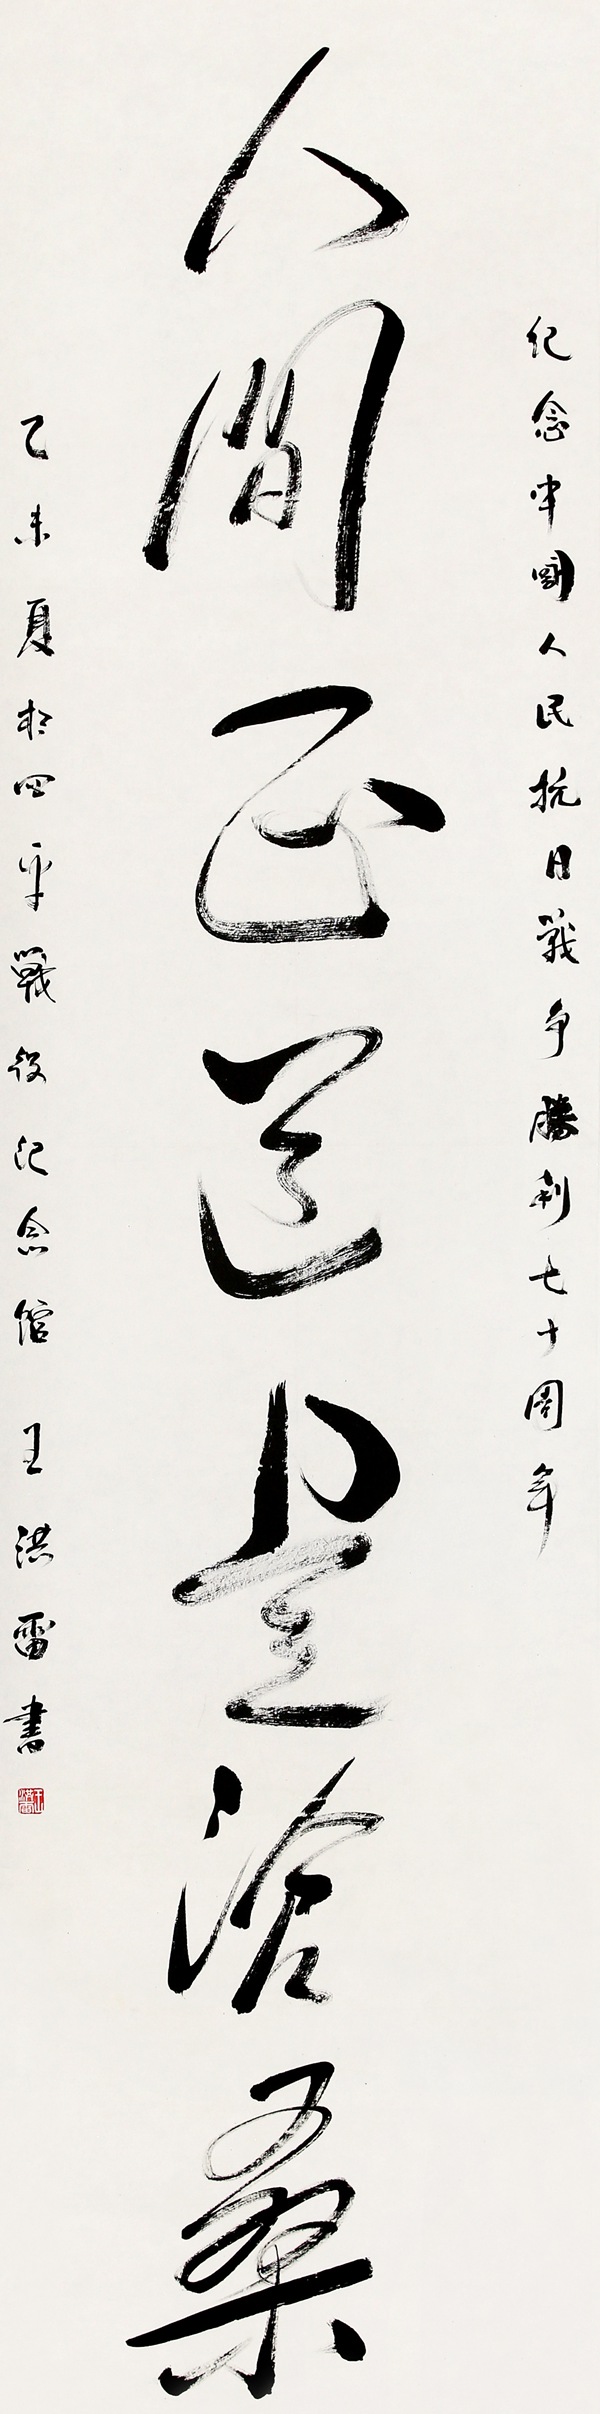 纪念中國人民抗日戰争勝利七十周年
人間正道是滄桑
乙未夏於四平戰役纪念馆 王洪雷書